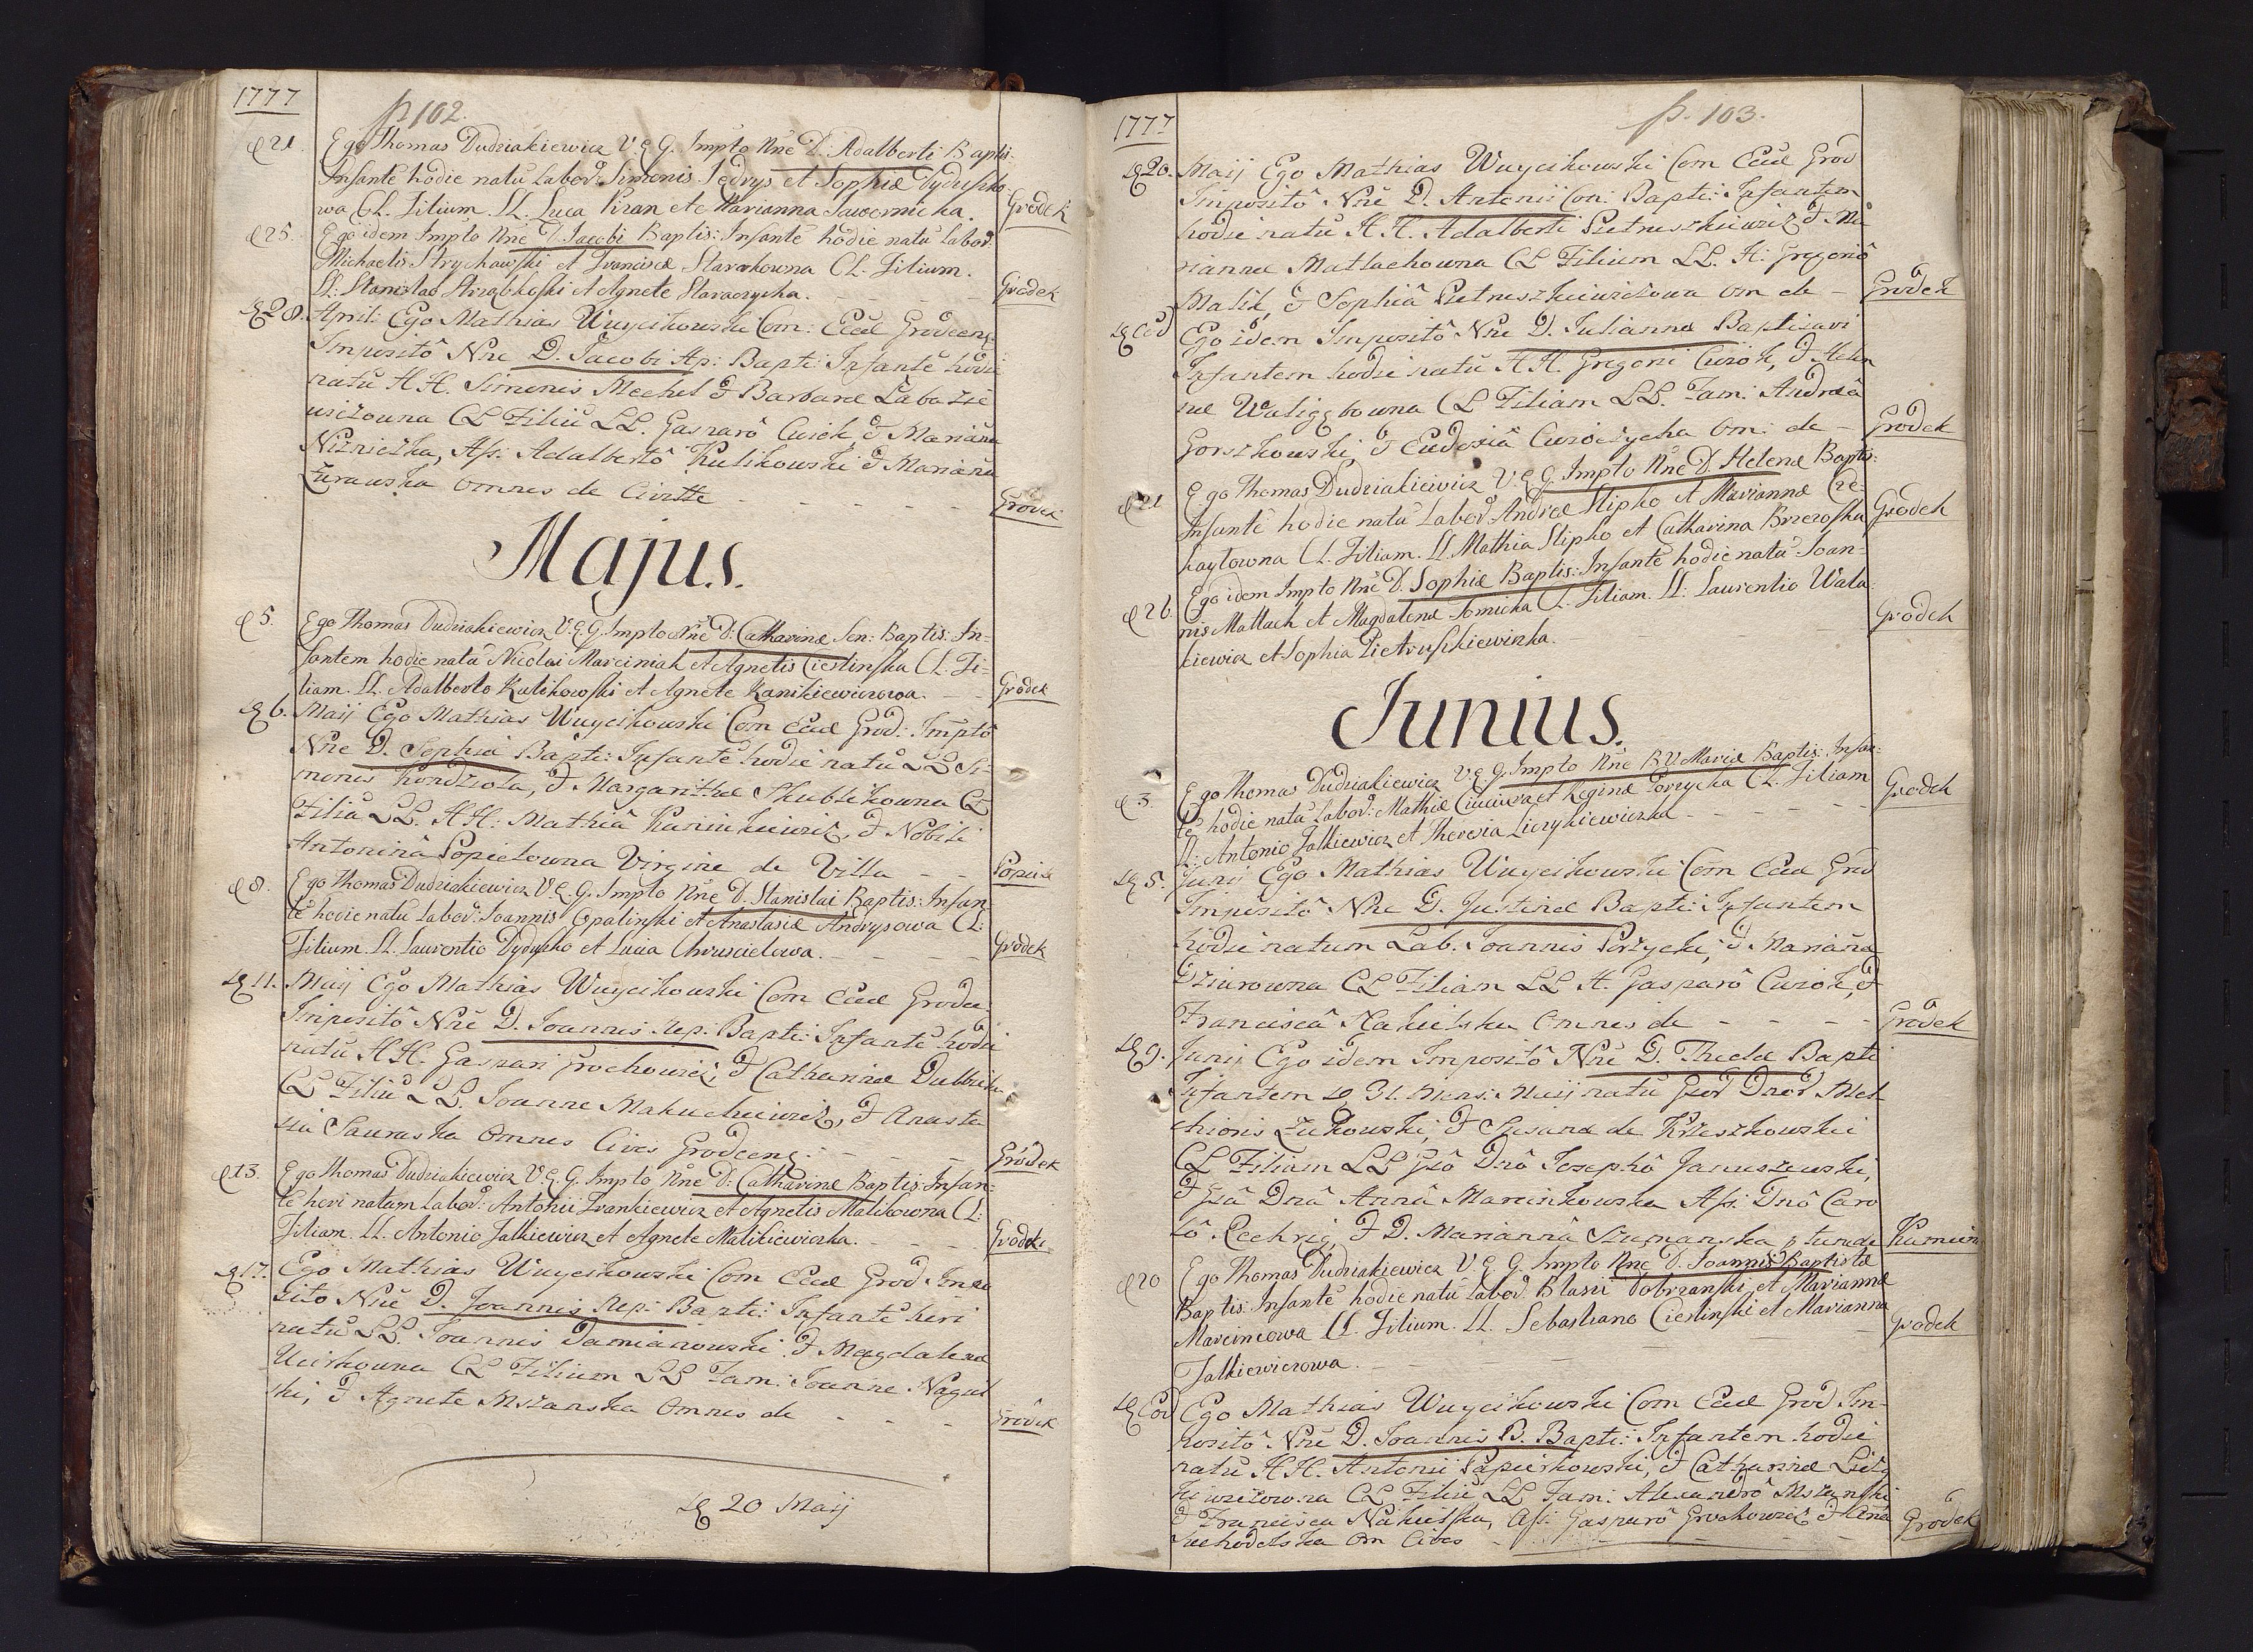 1777
p. 102.
d 21. Ego Thomas Dudziakiewicz V. E. G. Impto Nne D. Adalberti Baptis:
Infante hodie natu Labor. Simonis Jedrys et Sophiæ Dydusko-
wa CL. Filium. LL. Luca Piran et Marianna Jawornicka. Grodek
d 25. Ego idem Impto Nne D. Jacobi Baptis: Infante hodie natu Labor:
Michaelis Strychawski et Franciscæ Starackowna CL. Filium.
LL: Stanislao et Agnete Staraczycka. Grodek
d 28. April: Ego Mathias Wuycikowski Com: Eccl Grodecens:
Impositô Nne D. Jacobi Ap: Bapti: Infantē hodie
natū HH. Simonis Mechel & Barbaræ Labazie
wiczowna CL Filiū LL. Gasparô Cwiok, & Mariana
Nizniczka, Ass: Adalbertô Kulikowski & Mariana
Zurawska Omnes de Civitte Grodek
Majus.
d 5. Ego Thomas Dudziakiewicz V. E. G. Impto Nne D. Catharinæ Sen: Baptis: In-
fantem hodie natā Nicolai Marciniak et Agnetis Cieslinska CL. Fi-
liam. LL. Adalberto Kulikowski et Agnete Kasnikiewiczowa. Grodek
d 6. Maij Ego Mathias Wuycikowski Com Eccl Grod: Imptô
Nne D. Sophiæ Bapti: Infantē hodie natū LL Si-
monis Kondziola, & Margarithæ Skubikowna CL
Filiā LL. HH: Mathiâ Kasinkiewicz, & Nobili
Antoninâ Popielowna Virgine de Villa Popiele
d 8. Ego Thomas Dudziakiewicz V. E. G. Impto Nne D. Stanislai Baptis: Infan
te hodie natu Labor. Joannis Opalinski et Anastasiæ Andrysowa CL:
Filium. LL. Laurentio Dydusko et Lucia Chruscielowa. Grodek
d 11. Maij Ego Mathias Wuycikowski Com Eccl Grodec
Impositô Nne D. Joannis Nep: Bapti: Infantē hodie
natū HH. Gaspari Grochowicz, & Catharinæ
CL Filiū LL. Joanne Makuchiewicz, & Anasta
sia Sauraska Omnes Cives Grodecens: Gródek
d 13. Ego Thomas Dudziakiewicz V. E. G. Impto Nne D. Catharinæ Baptis: Infan-
te heri natam Labor: Antonii Frankiewicz et Agnetis Malikowna CL:
Filiam. LL. Antonio Jalkiewicz et Agnete Malikiewiczka. Grodek
d 17. Ego Mathias Wuycikowski Com Eccl Grod Impo
sito Nne D. Joannis Nep: Bapti: Infantē heri
natū LL. Joannis Damianowski & Magdalenæ
Ucirkowna CL Filium LL Fam: Joanne Nagul
ski, & Agnete Mszanska Omnes de Grodek
d 20 Maij
1777
p. 103.
d 20. Maij Ego Mathias Wuycikowski Com Eccl Grod
Impositô Nne D. Antonii Con: Bapti: Infantem
hodie natū HH. Adalberti Pietruszkiewicz & Ma
riannæ Matlachowna CL Filium LL. H: Gregoriô
Malik, & Sophiâ Pietruszkiewiczowa Om de Grodek
d Eod Ego idem Impositô Nne D. Julianna Baptisavi
Infantem hodie natū HH. Gregorii Cwiok, & Helen
næ CL Filiam LL. Fam: Andreâ
Gorszkowski, & Eudoxiâ Cwioczycka Om: de Grodek
d 21 Ego Thomas Dudziakiewicz V. E. G. Impto Nne D. Helenæ Baptis:
Infantē hodie natū Labor Andreæ Slipko et Mariannæ Cze-
kaylowna CL. Filiam. LL Mathia Slipko et Catharina Brzezoska Grodek
d 26. Ego idem Impto Nne D. Sophiæ Baptis: Infantē hodie natū Joan-
nis Matlach et Magdalenæ Tomicka CL. Filiam. LL: Laurentio Wala-
kiewicz et Sophia Pietruszkiewiczka. Grodek
Junius.
d 3. Ego Thomas Dudziakiewicz V. E. G. Impto Nne B V Mariæ Baptis: Infan-
te hodie natu Labor: Mathiæ Ciuciura et Reginæ Porzycka CL. Filiam
LL: Antonio Jalkiewicz et Theresia Liczykiewiczka Grodek
d 5. Junij Ego Mathias Wuycikowski Com Eccl Grod
Impositô Nne D. Justinæ Bapti: Infantem
hodie natum Lab. Joannis Porzycki, & Mariana
Dziurowna CL Filiam LL H. Gasparô Cwiok, &
Franciscâ Nakielska Omnes de Grodek
d 9. Junij Ego idem Impositô Nne D. Theclæ Bapti
Infantem d 31. Mens: Maij natū Gsor Dnor Mel
chioris Zukowski, & Susana de Krzeszkowskie
CL Filiam LL Gsô Dnô Josephô Januszewski,
& Gsâ Dnâ Annâ Marcinkowska Ass: Dnô Caro
lô, & D. Mariannâ Szumanska Kamien
d 20 Ego Thomas Dudziakiewicz V. E. G. Impto Nne D. Joannis Baptistæ
Baptis: Infantē hodie natū Labor. Blasii Dobrzanski et Mariannæ
Marcincowa CL. Filium. LL. Sebastiano Cieslinski et Marianna
Jalkiewiczowa. Grodek
d Eod Ego Mathias Wuycikowski Com Eccl Grod Im-
positô Nne D. Joannis B. Bapti: Infantem hodie
natū HH. Antonii Papierkowski, & Catharinæ Liczy
kiewiczowna CL Filiū LL Fam: Alexandrô Mszanski
& Francisca Nakielska, Ass: Gasparô Grochowicz & Ana
Suchodolska Om Cives Grodek